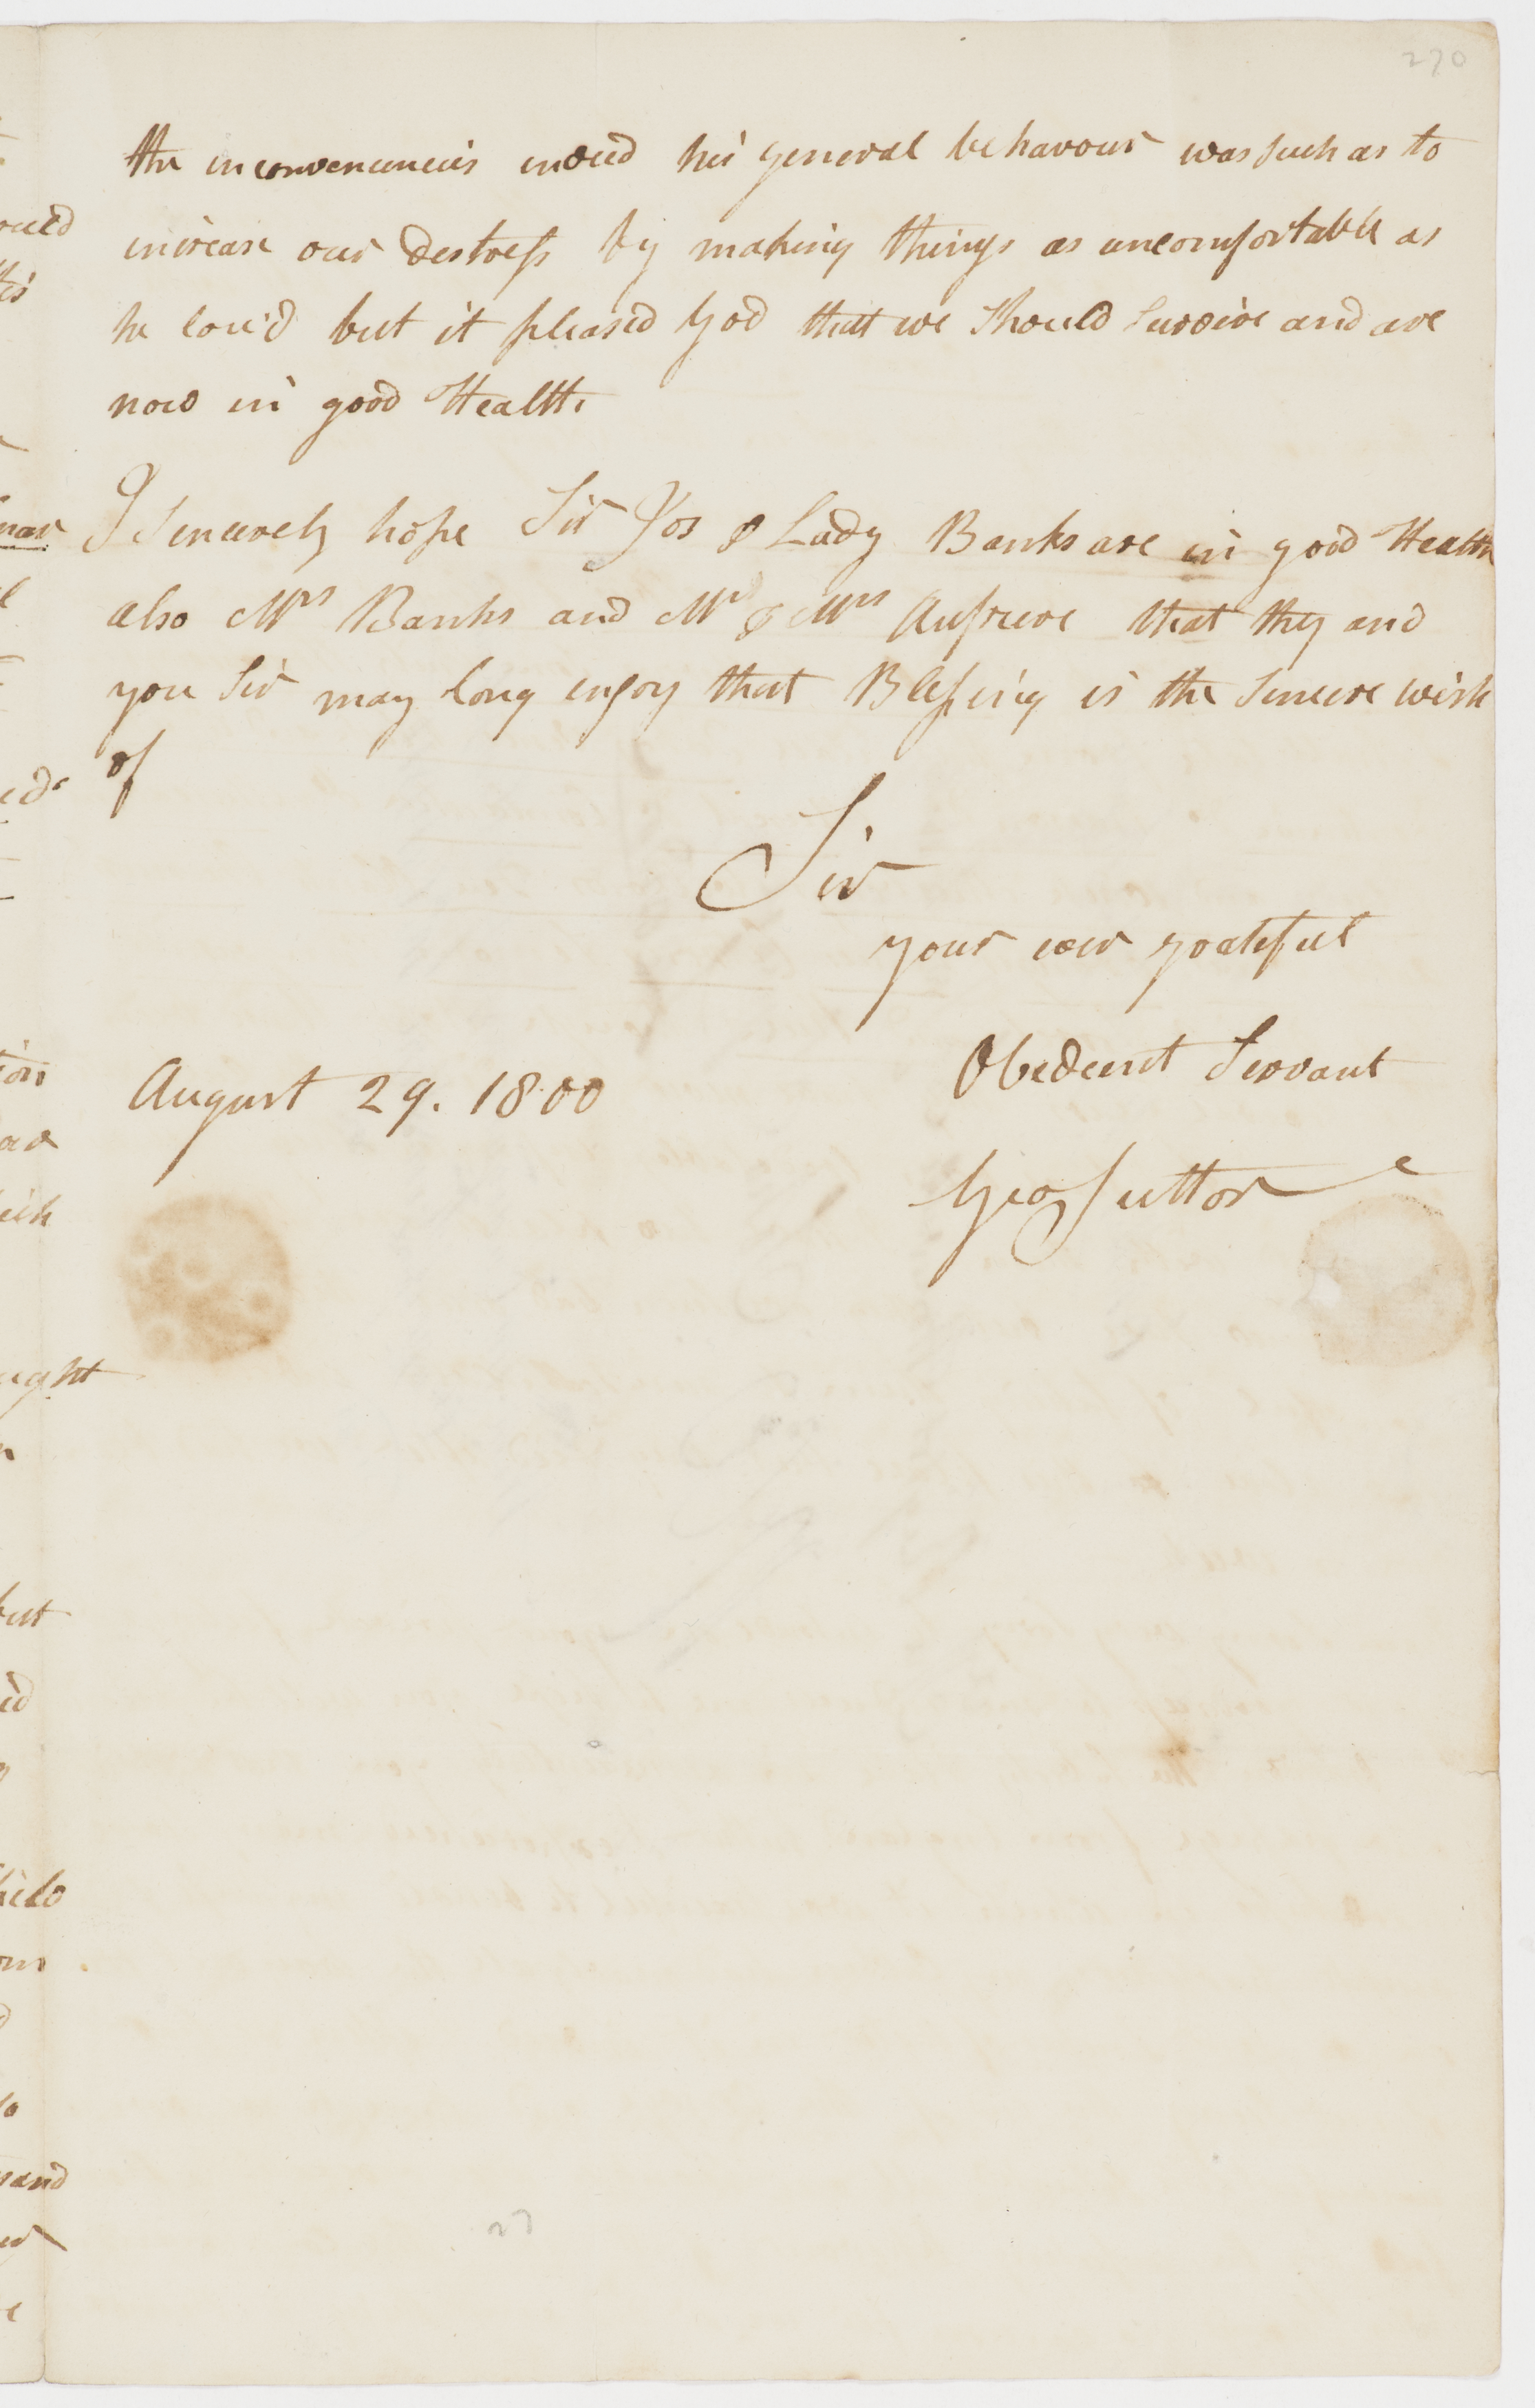 270
the inconveniencies indeed his general behavour was such as to
increase our destress by making things as uncomfortable as
he cou'd but it pleased God that we should survive and are
now in good Health.
I sincerely hope Sir Jos & Lady Banks are in good Health
also Mrs Banks and Mr & Mrs Aufrere that they and
you Sir may long enjoy that Blessing is the sincere wish
of
Sir
your ever grateful
Obedient Servant
August 29. 1800
Geo Suttor
27